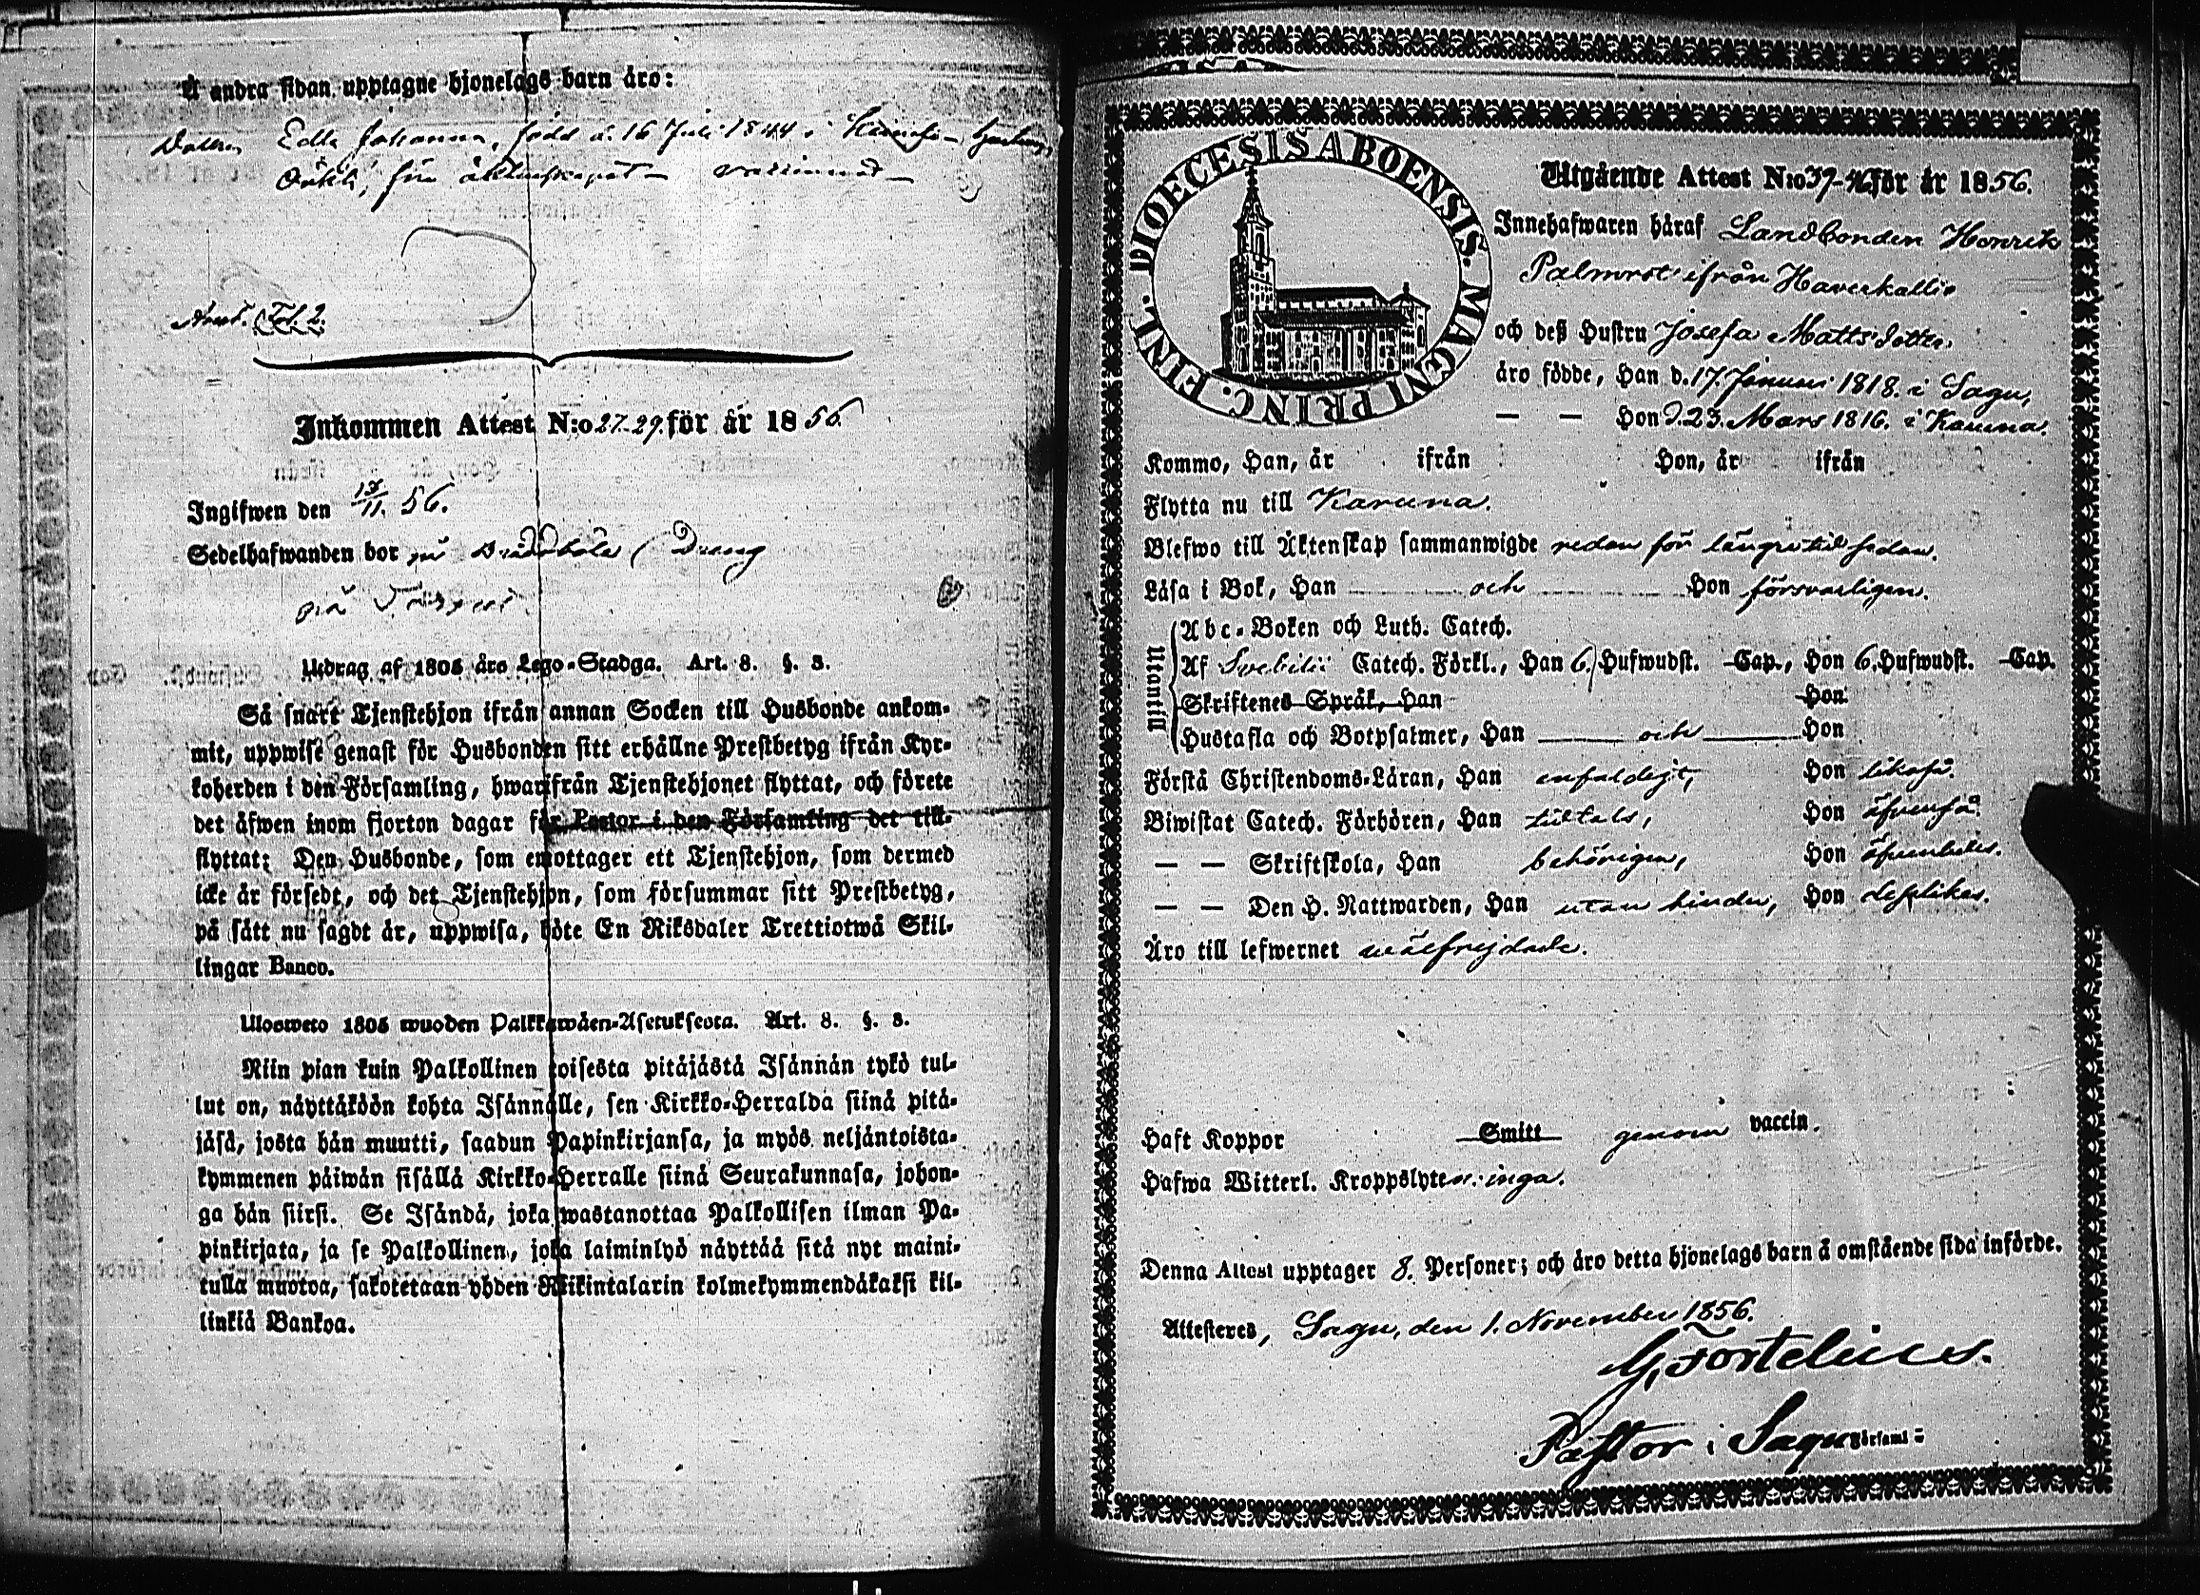 Å andra sidan upptagne hjonelags barn äro:
Dottren Edla Johanna, född d. 16 Juli 1844 i
för äktenskapet vaccinerad
Fol. 2.
Inkommen Attest N:o 27-29 för år 1856.
Ingifwen den 13/11. 56.
Sedelhafwanden bor på Dräng
på
Utdrag af 1805 års Lego-Stadga. Art. 8. §. 3.
Så snart Tjenstehjon ifrån annan Socken till Husbonde ankom-
mit, uppwise genast för Husbonden sitt erhållne Prestbetyg ifrån Kyr-
koherden i den Församling, hwarifrån Tjenstehjonet flyttat, och förete
det äfwen inom fjorton dagar för Pastor i den Församling det till-
flyttat; Den Husbonde, som emottager ett Tjenstehjon, som dermed
icke är försedt, och det Tjenstehjon, som försummar sitt Prestbetyg,
på sätt nu sagdt är, uppwisa, böte En Riksdaler Trettiotwå Skil-
lingar Banco.
Ulosweto 1805 wuoden Palkkawäen-Asetuksesta. Art. 8. §. 3.
Niin pian kuin Palkollinen toisesta pitäjästä Isännän tykö tul-
lut on, näyttäköön kohta Isännälle, sen Kirkko-Herralda siinä pitä-
jäsä, josta hän muutti, saadun Papinkirjansa, ja myös neljäntoista-
kymmenen päiwän sisällä Kirkko-Herralle siinä Seurakunnasa, johon-
ga hän siirsi. Se Isändä, joka wastanottaa Palkollisen ilman Pa-
pinkirjata, ja se Palkollinen, joka laiminlyö näyttää sitä nyt maini-
tulla muotoa, sakotetaan yhden Riikintalarin kolmekymmendäkaksi kil-
linkiä Bankoa.
DIOECESIS ABOENSIS. MAGNI PRINC. FINL.
Utgående Attest N:o 39-46 för år 1856.
Innehafwaren häraf Landbonden Henrik
Palmrot ifrån Haverkallio
och deß Hustru Josefa Mattsdotter
äro födde, Han d. 17. Januari 1818. i Sagu,
— — Hon d. 23. Mars 1816. i Karuna.
Kommo, Han, år ifrån Hon, år ifrån
Flytta nu till Karuna.
Blefwo till Äktenskap sammanwigde redan för längre tid sedan.
Läsa i Bok, Han och Hon försvarligen.
Utantill
Abc-Boken och Luth. Catech.
Af Svebilii Catech. Förkl., Han 6. Hufwudst. Cap., Hon 6. Hufwudst. Cap.
Skriftenes Språk, Han Hon
Hustafla och Botpsalmer, Han och Hon
Förstå Christendoms-Läran, Han enfaldigt, Hon likaså.
Biwistat Catech. Förhören, Han Hon äfvenså.
— — Skriftskola, Han behörigen, Hon äfvenledes.
— — Den H. Nattwarden, Han utan hinder, Hon desslikes.
Äro till lefwernet wälfrejdade.
Haft Koppor Smitt genom vaccin.
Hafwa Witterl. Kroppslyten: inga.
Denna Attest upptager 8. Personer; och äro detta hjonelags barn å omstående sida införde.
Attesteres, Sagu, den 1. November 1856.
G. Fortelius.
Pastor i Sagu Församl: